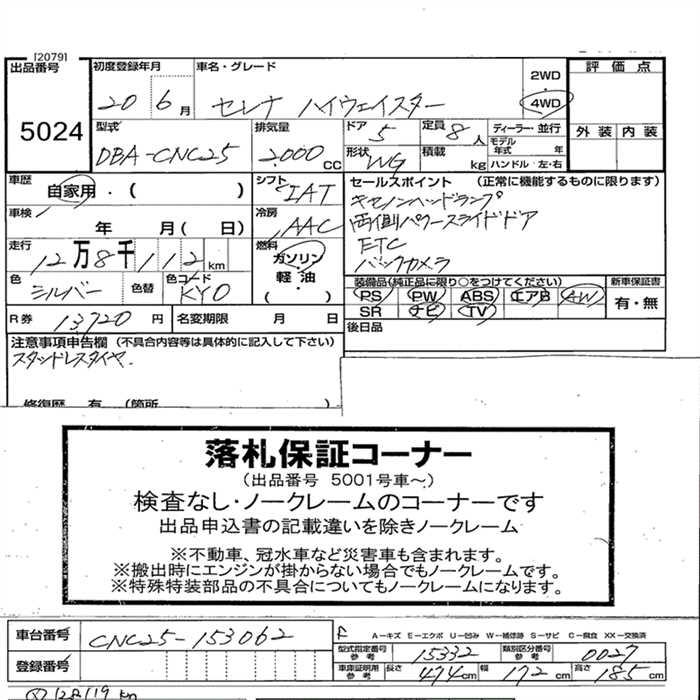 120791
出品番号 5024
初度登録年月 20 6月
車名・グレード セレナ ハイウェイスター
2WD
4WD
評価点
外装 内装
型式 DBA-CNC25
排気量 2,000 CC
ドア 5
定員 8人
形状 WG
積載 kg
ディーラー・並行
モデル年式 年
ハンドル 左・右
車歴 自家用・( )
シフト IAT
車検 年 月( 日)
冷房 AAC
走行 12万8千112km
燃料 ガソリン 軽油 ( ・ )
色 シルバー
色替
色コード KY0
R券 13,720円
名変期限 月 日
セールスポイント (正常に機能するものに限ります)
キセノンヘッドランプ
両側パワースライドドア
ETC
バックカメラ
装備品(純正品に限り○をつけてください)
PS PW ABS エアB AW
SR ナビ TV
新車保証書
有・無
後日品
注意事項申告欄 (不具合内容等は具体的に記入して下さい)
スタッドレスタイヤ.
修復歴 有 (箇所
落札保証コーナー
(出品番号 5001号車～)
検査なし・ノークレームのコーナーです
出品申込書の記載違いを除きノークレーム
※不動車、冠水車など災害車も含まれます。
※搬出時にエンジンが掛からない場合でもノークレームです。
※特殊特装部品の不具合についてもノークレームになります。
車台番号 CNC25-153062
登録番号
A－キズ E－エクボ U－凹み W－補修跡 S－サビ C－腐食 XX－交換済
型式指定番号 参考 15332
類別区分番号 参考 0027
車庫証明用 参考 長さ 474cm 幅 172cm 高さ 185cm
128119 km